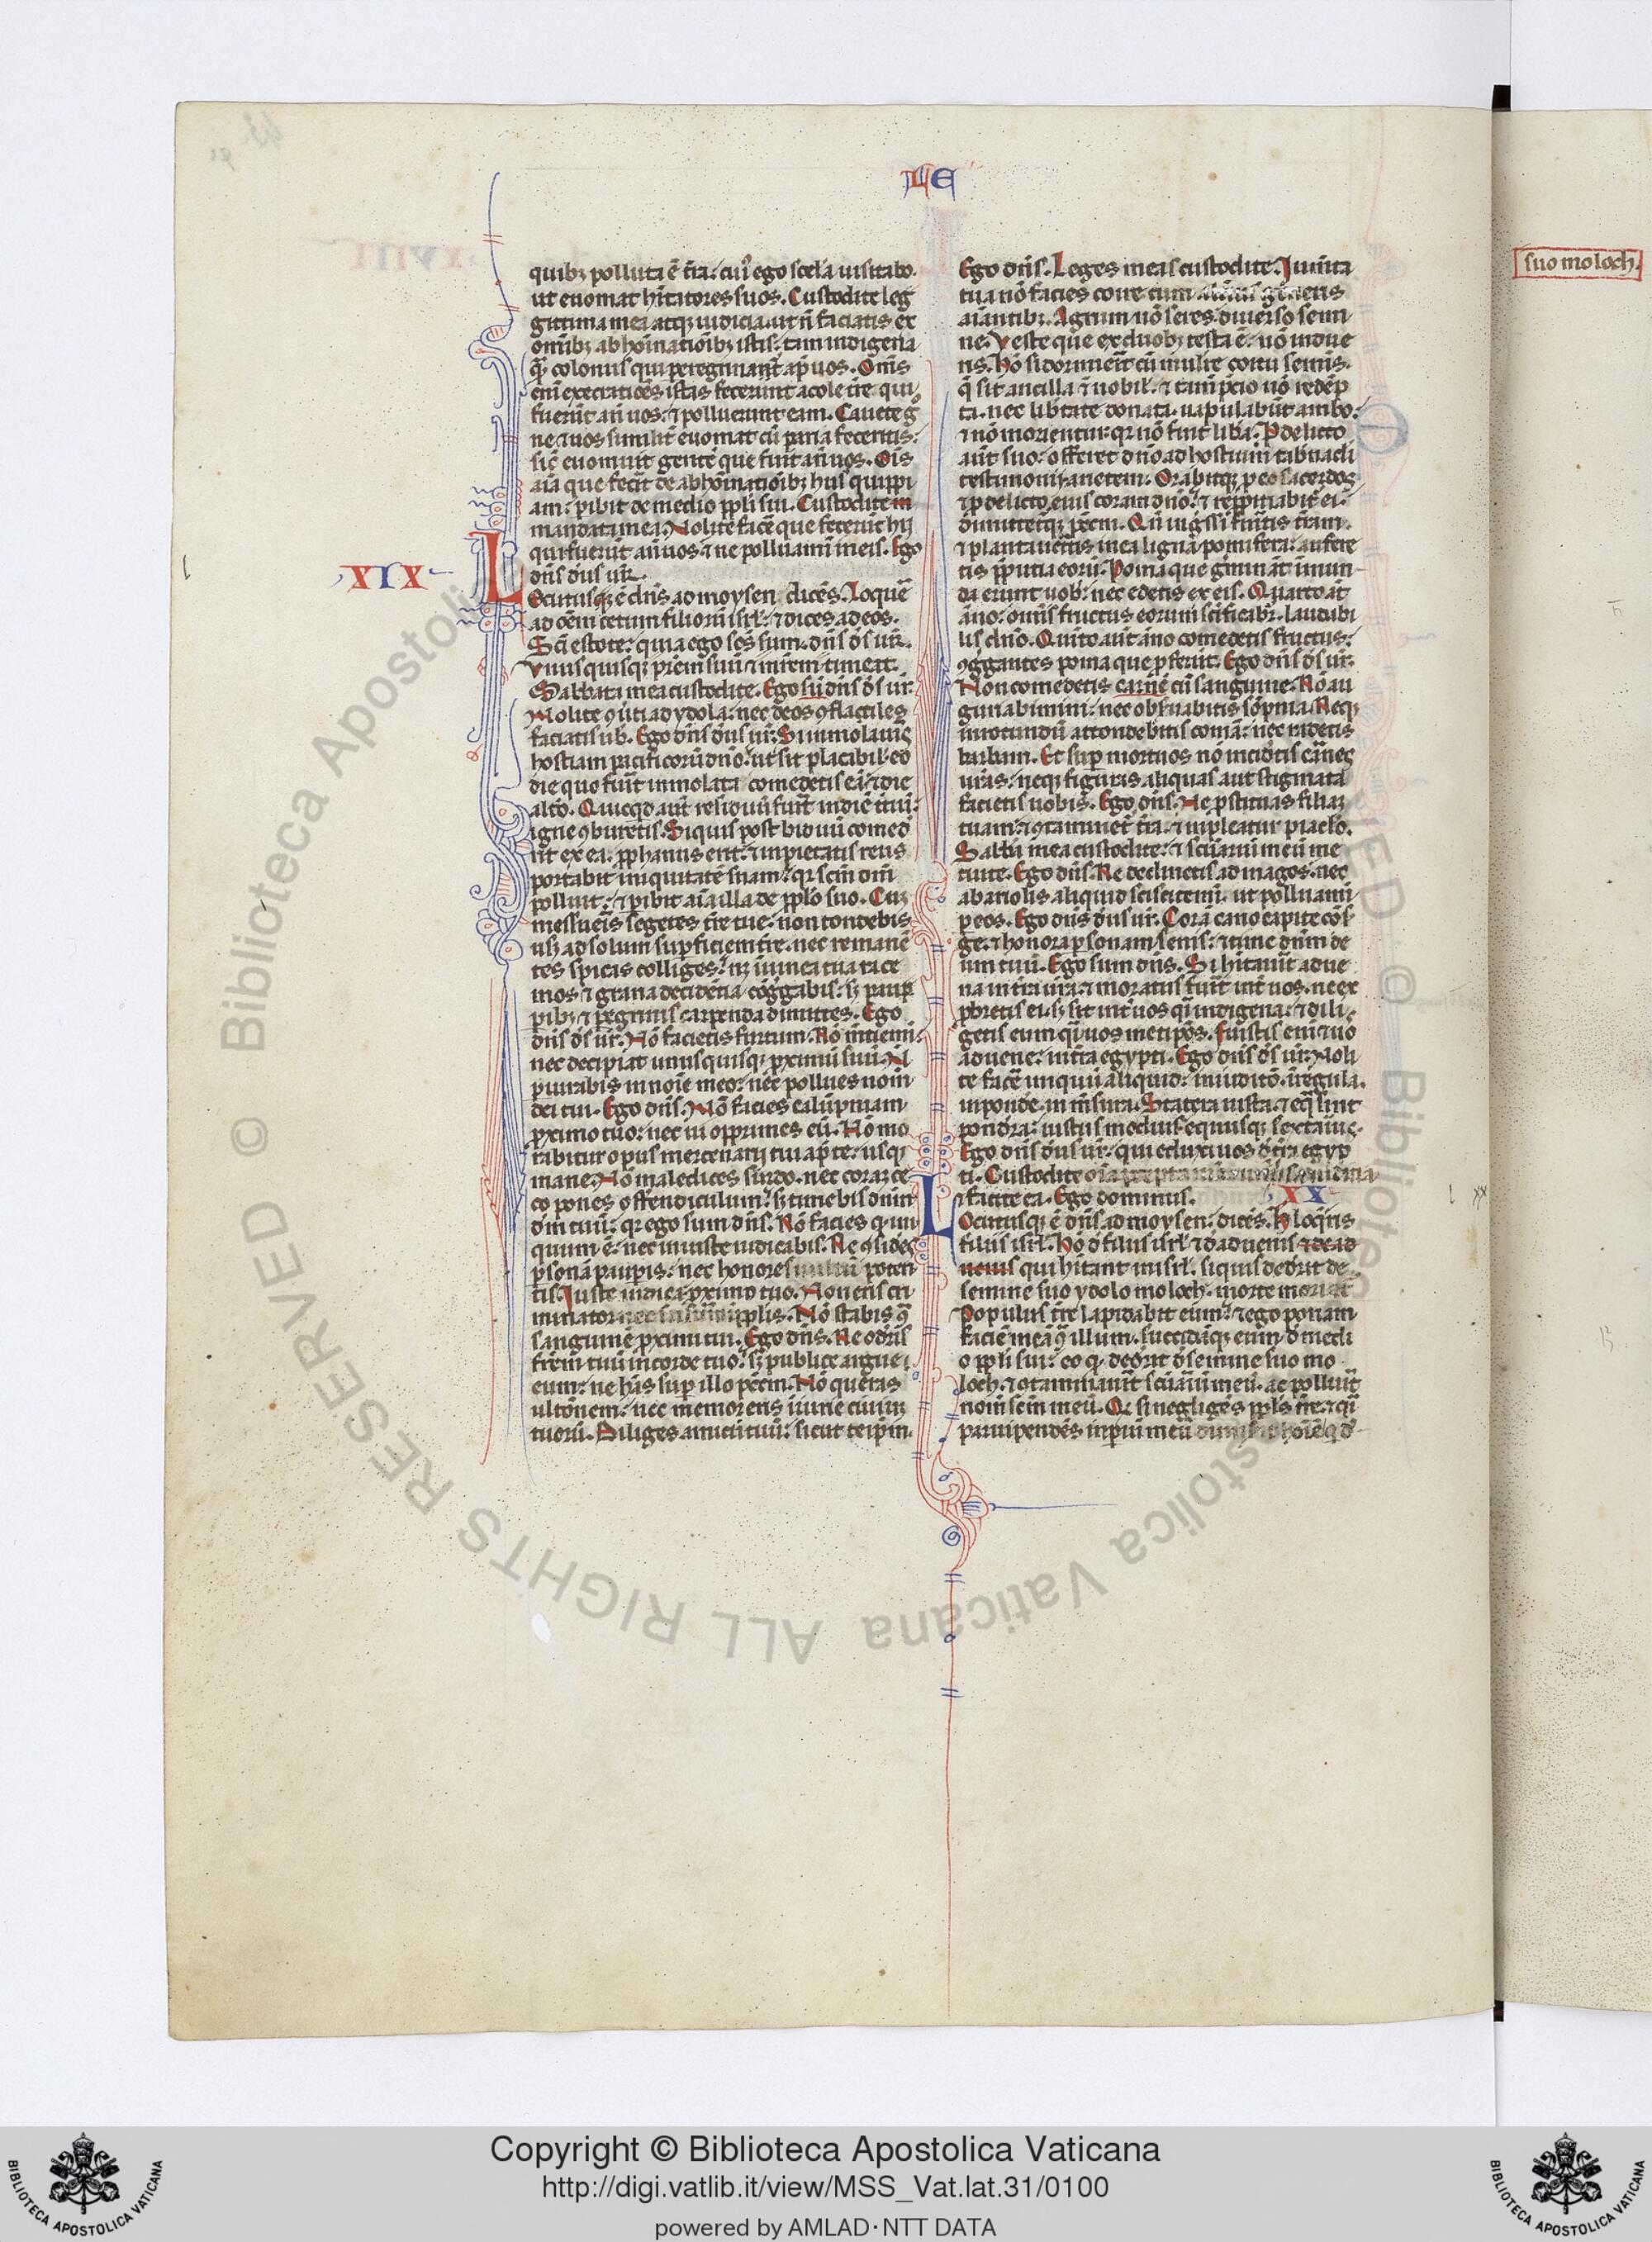 LE
quibȝ polluta ē t̄ra: cui᷒ ego scel̄a uisitabo·
ut euomat hītatores suos. Custodite leg
gittima mea atqȝ iudicia. ut n̄ faciatis ex
om̄ibȝ abhoīnatiōibȝ istis: tam indigena
q̄ꝫ colonus qui peregrinant̄ ap̄ uos. Om̄s
eni᷒ execratiōes istas fecerunt acole t̄re qui
fuerūt an̄ uos: ⁊ polluerunt eam. Cauete g̊
ne ⁊ uos similit̄ euomat cū paria feceritis:
sic̄ euomuit gentē que fuit an̄ uos. Ōis
aīa que fec̄it de abhoīnatiōibȝ hiis quippi
am: ꝑibit de medio ppl̄i sui. Custodite
mandata mea. Nolite fac̄e que fecerūt hij
qui fuerūt an̄ uos ⁊ ne polluami᷒ in eis. Ego
dn̄s d̄us ur̄.
XIX
Locutusqȝ ē dn̄s ad moysen dicēs. Loquē
ad oēm cetum filiorū isrl̄: ⁊ dices ad eos.
Sc̄i estote: quia ego sc̄s sum. dn̄s d̄s ur̄.
Vnusquisqȝ pr̄em suū ⁊ mr̄em timeat.
Sabbata mea custodite. Ego sū dn̄s d̄s ur̄.
Nolite ꝯūti ad ydola: nec deos ꝯflactiles
faciatis ub̄. Ego dn̄s d̄us ur̄. Si immolau᷒itis
hostiam pacificorū dn̄o: ut sit placabil̄ eo
die quo fuīt immolata comedetis eā: ⁊ die
alt̄o. Quicqd̄ aut̄ reliquū fuīt in diē t̄tiū:
igne ꝯburetis. Si quis post biduū comed
it̄ ex ea: ꝓphanus erit: ⁊ impietatis reus
portabit iniquitatē suam: qr scm̄ dn̄i
polluit: ⁊ ꝑibit aīa illa de pplo̅ suo. Cuȝ
messueris segetes t̄re tue: non tondebis
usqȝ ad solum suꝑficiem t̄re. nec remanē
tes spicas colliges: neqȝ in uinea tua race
mos ⁊ grana decidētia cōggabis: sȝ pauꝑ
ꝑibȝ ⁊ ꝑegrinis carpenda dimittes. Ego
dn̄s d̄s ur̄. Nō facietis furtum. Nō mtiemi᷒:
nec decipiat unusquisqȝ ꝓximū suū. Nō
ꝑiurabis in noīe meo: nec pollues nom̄
dei tui. Ego dn̄s. Nō facies calūpniam
ꝓximo tuo: nec ui opprimes eū. Nō mo
rabitur opus mercenarij tui ap̄ te: usqȝ
mane. Nō maledices surdo. nec corā ce
co pones offendiculum: sȝ timebis dn̄m
d̄m tuū: qr ego sum dn̄s. Nō facies qd̄ iniq̄
quum ē: nec iniuste iudicabis. Ne ꝯsides
ꝑsonā pauꝑis: nec honores uultū poten
tis. Juste iudica ꝓximo tuo. Non eris cri
minator nec susurro in ppl̄is. Nō stabis ꝯ̄
sanguinē ꝓximi tui. Ego dn̄s. Ne odēis
fr̄em tuū in corde tuo: sȝ publice argue
eum: ne hēas suꝑ illo pēcm. Nō queras
ultōnem: nec memor eris iiurie ciuiū
tuorū. Diliges amicū tuū: sicut teip̄m.
Ego dn̄s. Leges meas custodite. Jum̄ta
tua nō facies coire cum alt̄ius generis
aīantibȝ. Agrum nō seres diuerso semi
ne. Veste que ex duobȝ texta ē: nō indue
ris. Hō si dormieit̄ cū mulie᷒ coitu seminis.
q̄ sit ancilla ⁊ nobil̄. ⁊ tam̄ pc̄io nō redēp
ta. nec lib̄tate donata. uapulabūt ambo:
⁊ nō morientur: qr nō fuit lib̄a. P delicto
aut̄ suo: offeret dn̄o ad hostium tab̄nacli
testimonij: arietem. Orabitqȝ ꝑ eo sacerdos
⁊ ꝑ delicto eius coram dn̄o: ⁊ repp̄itiabit̄ ei.
dimitteturqȝ pēcm. Qn̄ ing̊ssi fuitis tram.
⁊ plantaueitis in ea ligna pomifera: aufere
tis p̄putia eorū. Poma que gīminat̄ inmun
da erunt uob̄: nec edetis ex eis. Quarto at̄
āno: om̄is fructus eorum sc̄ificabr̄. laudabi
lis dn̄o. Quīto aut̄ āno comedetis fructus:
ꝯggantes poma que ꝓferūt. Ego dn̄s d̄s ur̄.
Non comedetis carnē cū sanguine. Nō au
gurabimini: nec obs̄uabitis sōpnia. Neqȝ
in rotundū attondebitis comā: nec radetis
barbam. Et suꝑ mortuos nō incidetis carnēs
ur̄as: neqȝ figuras aliquas aut stigmata
facietis uobis. Ego dn̄s. Ne ꝓstituas filiaȝ
tuam: ⁊ ꝯtaminet̄ t̄ra: ⁊ impleatur piacl̄o.
Sabb̄a mea custodite: ⁊ sc̄uariū meū me
tuite. Ego dn̄s. Ne declinetis ad magos. nec
ab ariolis aliquid sciscitemi᷒. ut polluami᷒
ꝑ eos. Ego dn̄s d̄us ur̄. Corā cano capite cōs᷒
ge: ⁊ honora ꝑsonam senis: ⁊ time dn̄m de
um tuū. Ego sum dn̄s. Si hītauīt adue
na in t̄ra ur̄a: ⁊ moratus fuīt int̄ uos. ne ex
ꝓbretis ei. sȝ sit int̄ uos q̄i indigena: ⁊ dili
getis eum q̄i uos metip̄os. Fuistis eni᷒ ⁊ uo
aduene: in t̄ra egypti. Ego dn̄s d̄s ur̄. Noli
te fac̄e iniquū aliquid: in iuditō. i regula.
in pondē. in m̄sura. Statera iusta. ⁊ eq̄ sint
pond̄a: iustus modius equusqȝ sextari᷒.
Ego dn̄s d̄us ur̄: qui eduxi uos d̄ tra egyp
ti. Custodite
⁊ facite ea. Ego dominus.
XX
Locutusqȝ ē dn̄s ad moysen. dicēs. H̄ loq̄ris
filiis isrl̄. Hō d̄ filiis isrl̄ ⁊ d̄ aduenis ⁊ de ad
uenis qui hītant in isrl̄. siquis ded̄it de
semine suo ydolo moloch. morte moriat̄
Populus t̄re lapidabit eum: ⁊ ego ponam
faciē meā ꝯ̄ illum. succidāqȝ eum d̄ medi
o ppl̄i sui: eo qd̄ ded̄it d̄ semine suo mo
loch. ⁊ ꝯtaminauīt sc̄uariū meū. ac polluīt
nom̄ scm̄ meū. Qd̄ si negligēs ppls̄ t̄re. ⁊ q̄i
paruipendēs imp̄iū meū
suo moloch.
Copyright © Biblioteca Apostolica Vaticana
http://digi.vatlib.it/view/MSS_Vat.lat.31/0100
powered by AMLAD·NTT DATA
BIBLIOTECA APOSTOLICA VATICANA
BIBLIOTECA APOSTOLICA VATICANA
ALL RIGHTS RESERVED © Biblioteca Apostolica Vaticana